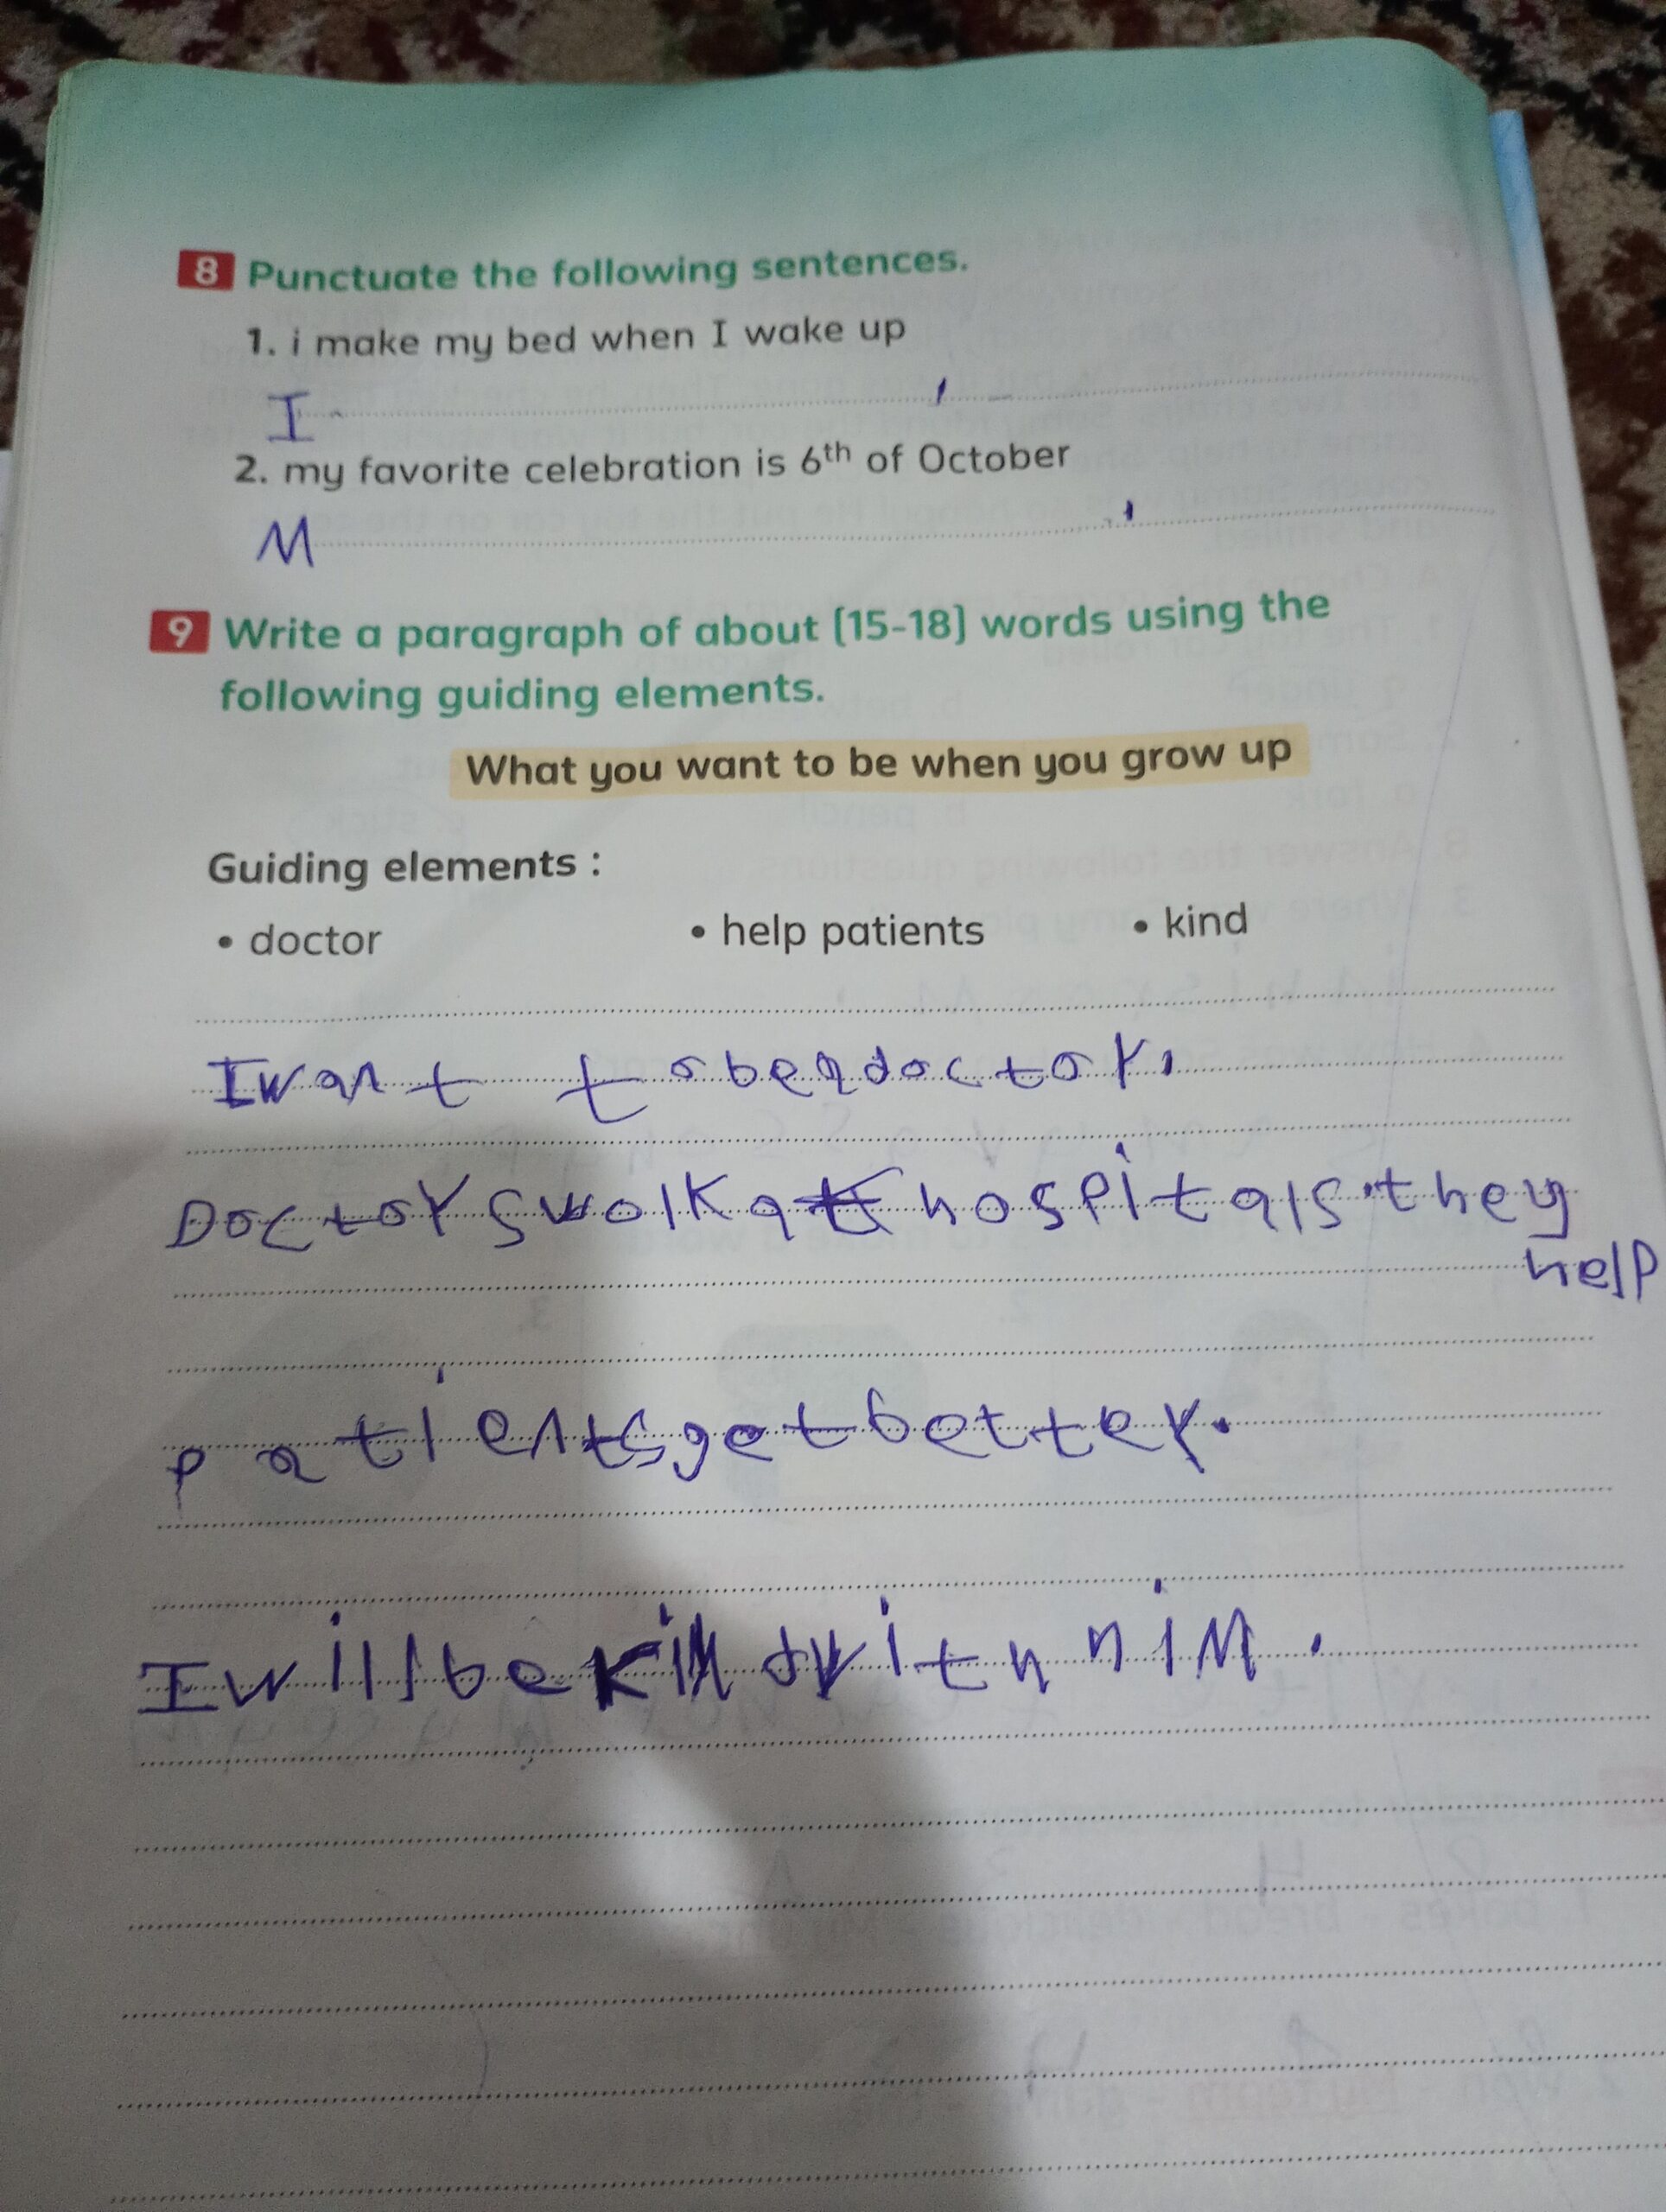 8 Punctuate the following sentences.
1. i make my bed when I wake up
I ,
2. my favorite celebration is 6th of October
M ,
9 Write a paragraph of about (15-18) words using the
following guiding elements.
What you want to be when you grow up
Guiding elements :
• doctor • help patients • kind
I want to be a doctor.
Doctors wolk at hospitals. they
help
patients get better.
I will be kind with him.